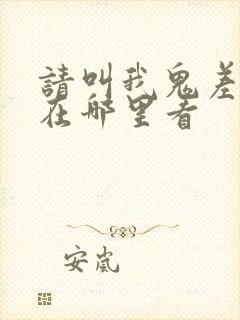 請叫我鬼差
在哪里看
安嵐